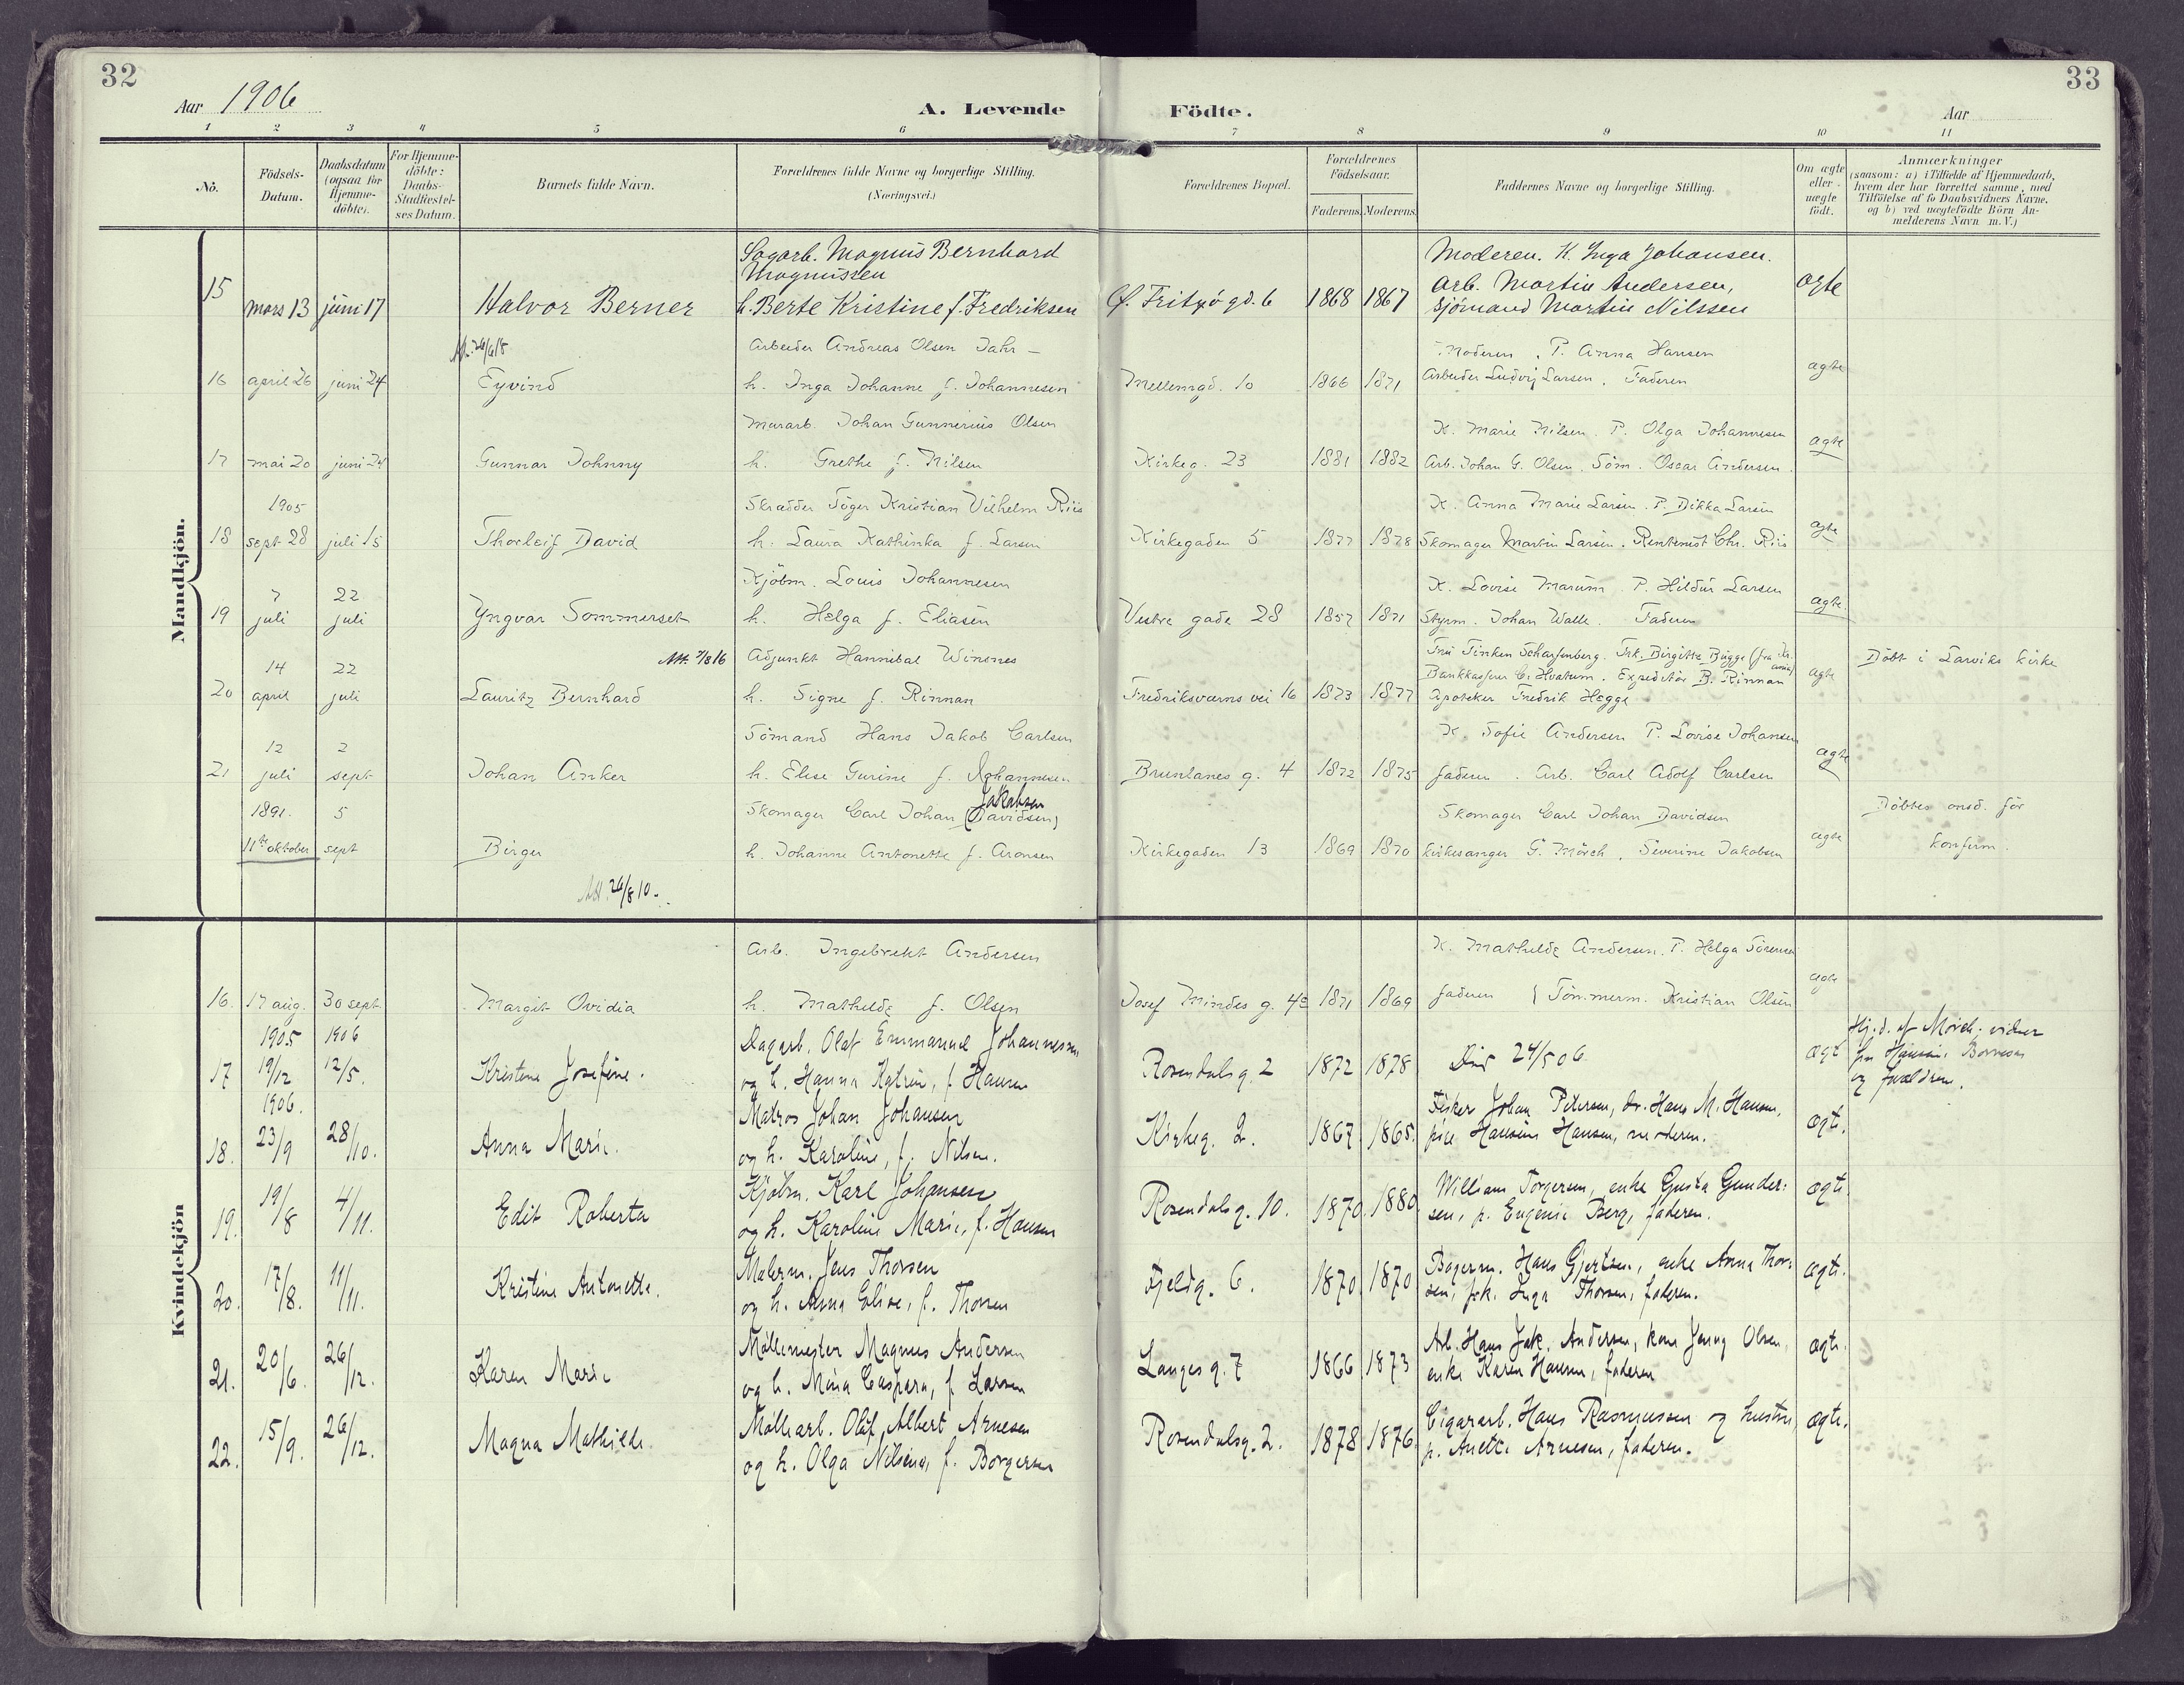 32
33
Aar 1906
A. Levende Födte.
Aar
1 2 3 4 5 6 7 8 9 10 11
No.
Födsels-Datum.
Daabsdatum (ogsaa for Hjemme-döbte).
For Hjemme-döbte: Daabs-Stadfæstel-ses Datum.
Barnets fulde Navn.
Forældrenes fulde Navne og borgerlige Stilling.
(Næringsvei.)
Forældrenes Bopæl.
Forældrenes Födselsaar.
Faderens. Moderens.
Faddernes Navne og borgerlige Stilling.
Om ægte eller uægte födt.
Anmærkninger
(saasom: a) i Tilfælde af Hjemmedaab,
hvem der har forrettet samme, med
Tilföielse af to Daabsvidners Navne.
og b) ved uægtefödte Börn An-
melderens Navn m. V.)
Mandkjön.
Sagarb. Magnus Bernhard Moderen. K. Inga Johansen.
Magnussen
15 mars 13 juni 17 Halvor Berner h. Berte Kristine f. Fredriksen Ø. Fritzøgd. 6 1868 1867 Arb. Martin Andersen, ægte
Sjömand Martin Nilssen
Att. 26/6/8 Arbeider Andreas Olsen Jahr – Moderen. P. Anna Hansen
16 april 26 juni 24 Eyvind h. Inga Johanne f. Johannesen Mellemgd. 10 1866 1871 Arbeider Ludvig Larsen. Faderen ægte
Murarb. Johan Gunnerius Olsen K. Marie Nilsen. P. Olga Johannesen
17 mai 20 juni 24 Gunnar Johnny h. Grethe f. Nilsen Kirkeg. 23 1881 1882 Arb. Johan G. Olsen. Söm. Oscar Andersen. ægte
1905 Skrædder Töger Kristian Vilhelm Riis K. Anna Marie Larsen. P. Dikka Larsen
18 sept 28 juli 15 Thorleif David h. Laura Kathinka f. Larsen Kirkegaden 5 1877 1878 Skomager Martin Larsen. Rentenist Chr. Riis ægte
7 22 Kjöbm. Louis Johannesen K. Lovise Marum. P. Hildur Larsen
19 juli juli Yngvar Sommerset h. Helga f. Eliasen Vestre gade 28 1857 1871 Styrm. Johan Walle. Faderen ægte
Att. 7/8 16 Adjunkt Hannibal Winsnes Fru Tinken Scharfenberg. Frk. Birgitte Bugge (fra Kr.ania)
14 22 Bankkasserer C. Hvatum. Expeditör B. Rinnan Döbt i Larviks kirke
20 april juli Lauritz Bernhard h. Signe f. Rinnan Fredriksværns vei 16 1873 1877 Apoteker Fredrik Hegge ægte
12 2 Sömand Hans Jakob Carlsen K. Sofie Andersen P. Lovise Johansen
21 juli sept Johan Anker h. Elise Gurine f. Johannesen Brunlanes g. 4 1872 1875 Faderen. Arb. Carl Adolf Carlsen ægte
Jakobsen
1891. 5 Skomager Carl Johan (Davidsen) Skomager Carl Johan Davidsen Döbtes onsd. för
11te oktober sept Birger h. Johanne Antonette f. Aronsen Kirkegaden 13 1869 1870 Kirkesanger G. Mörch. Severine Jakobsen ægte konfirm.
Att. 26/8 10.
Kvindekjön
Arb. Ingebrekt Andersen K. Mathilde Andersen. P. Helga Sörensen
16. 17 aug. 30 sept Margit Ovidia h. Mathilde f. Olsen Josef Mindes g. 4c 1871 1869 Faderen Tömmerm. Kristian Olsen ægte
1905 1906 Dagarb. Olaf Emmanuel Johannessen Hj.d. af Mörch. vidner
17 19/12 12/5. Kristine Josefine. og h. Hanna Katrin, f. Hansen Rosendalsg. 2 1872 1878 Död 24/5 06 ægt fru Hansine
og forældrene.
1906. Matros Johan Johansen Fisker Johan Petersen, do. Hans M. Hansen,
18. 23/9 28/10. Anna Marie. og h. Karoline, f. Nilsen. Kirkeg. 2. 1867 1865. pike Hansine Hansen, moderen. ægte.
Kjöbm. Karl Johansen William Torgersen, enke Gusta Gunder-
19. 19/8 4/11. Edit Roberta og h. Karoline Marie, f. Hansen Rosendalsg. 10. 1870. 1880 sen, p. Eugenie Berg, faderen. ægte.
Malerm. Jens Thorsen Bagerm. Hans Gjertsen, enke Anna Thor-
20. 17/8. 11/11. Kristine Antonette. og h. Anna Elise, f. Thorsen Fjeldg. 6. 1870 1870 sen, frk. Inga Thorsen, faderen. ægte.
Möllemester Magnus Andersen Arb. Hans Jak. Andersen, kone Jenny Olsen,
21. 20/6. 26/12. Karen Marie og h. Mina Caspara, f. Larsen Langesg. 7 1866 1873 enke Karen Hansen, faderen ægte.
Möllearb. Olaf Albert Arnesen Cigararb. Hans Rasmussen og hustru,
22. 15/9. 26/12. Magna Mathilde. og h. Olga Nilsine, f. Borgersen Rosendalsg. 2. 1878 1876. p. Anette Arnesen, faderen. ægte.